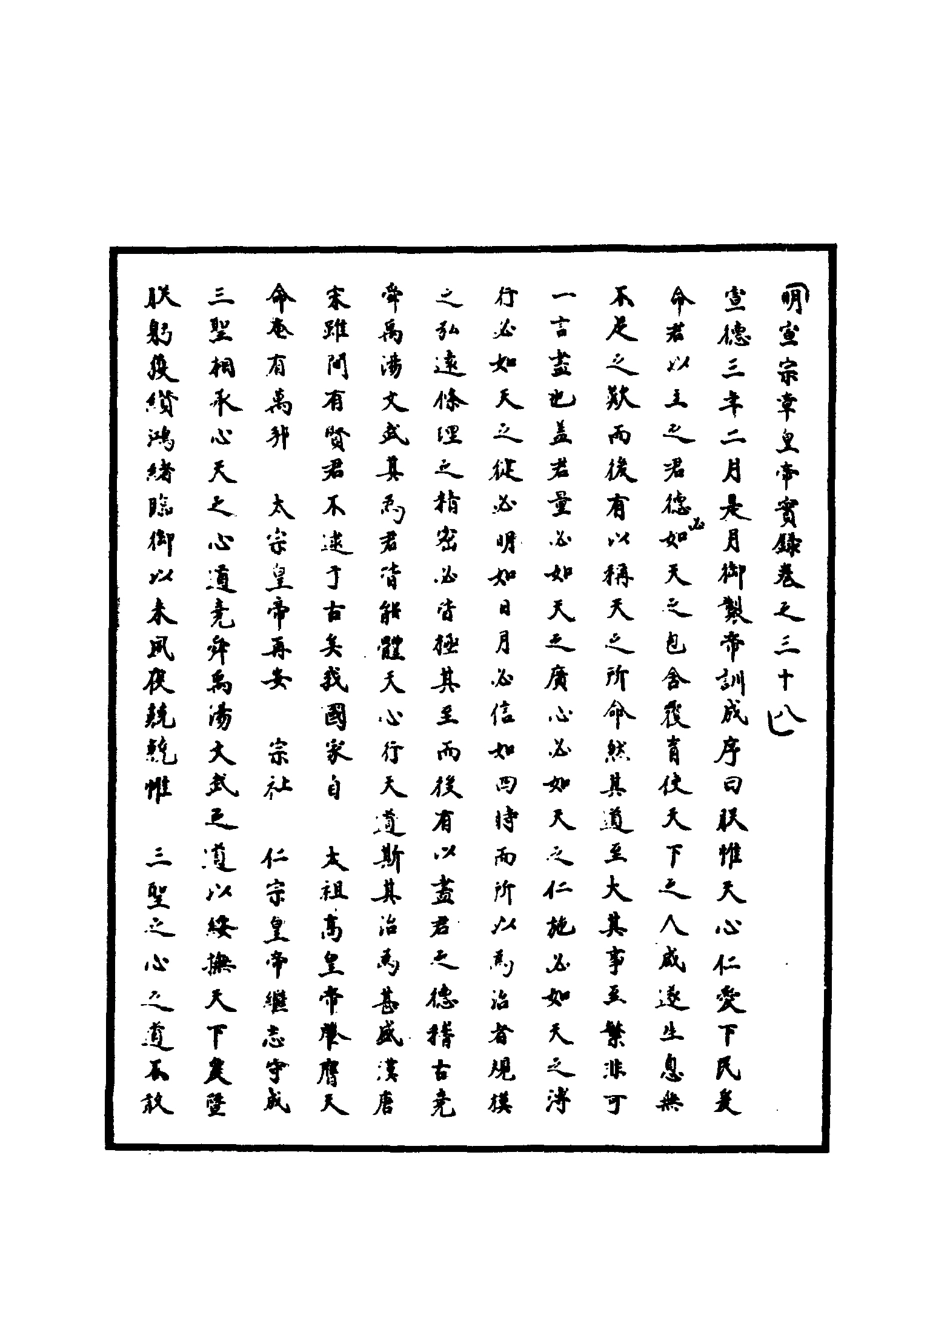 明宣宗章皇帝實錄卷之三十八
宣德三年二月是月御製帝訓成序曰朕惟天心仁愛下民爰
命君以主之君德必如天之包含發育使天下之人咸遂生息無
不足之歎而後有以稱天之所命然其道至大其事至繁非可
一言盡也盖君量必如天之廣心必如天之仁施必如天之溥
行必如天之從必明如日月必信如四時而所以為治者規模
之弘遠條理之精密必皆極其至而後有以盡君之德稽古堯
舜禹湯文武其為君皆能體天心行天道斯其治為甚盛漢唐
宋雖間有賢君不逮于古矣我國家自 太祖高皇帝肇膺天
命奄有萬邦 太宗皇帝再安 宗社 仁宗皇帝繼志守成
三聖相承心天之心道堯舜禹湯文武之道以綏撫天下爰暨
朕躬獲纘鴻緒臨御以來夙夜兢兢惟 三聖之心之道不敢